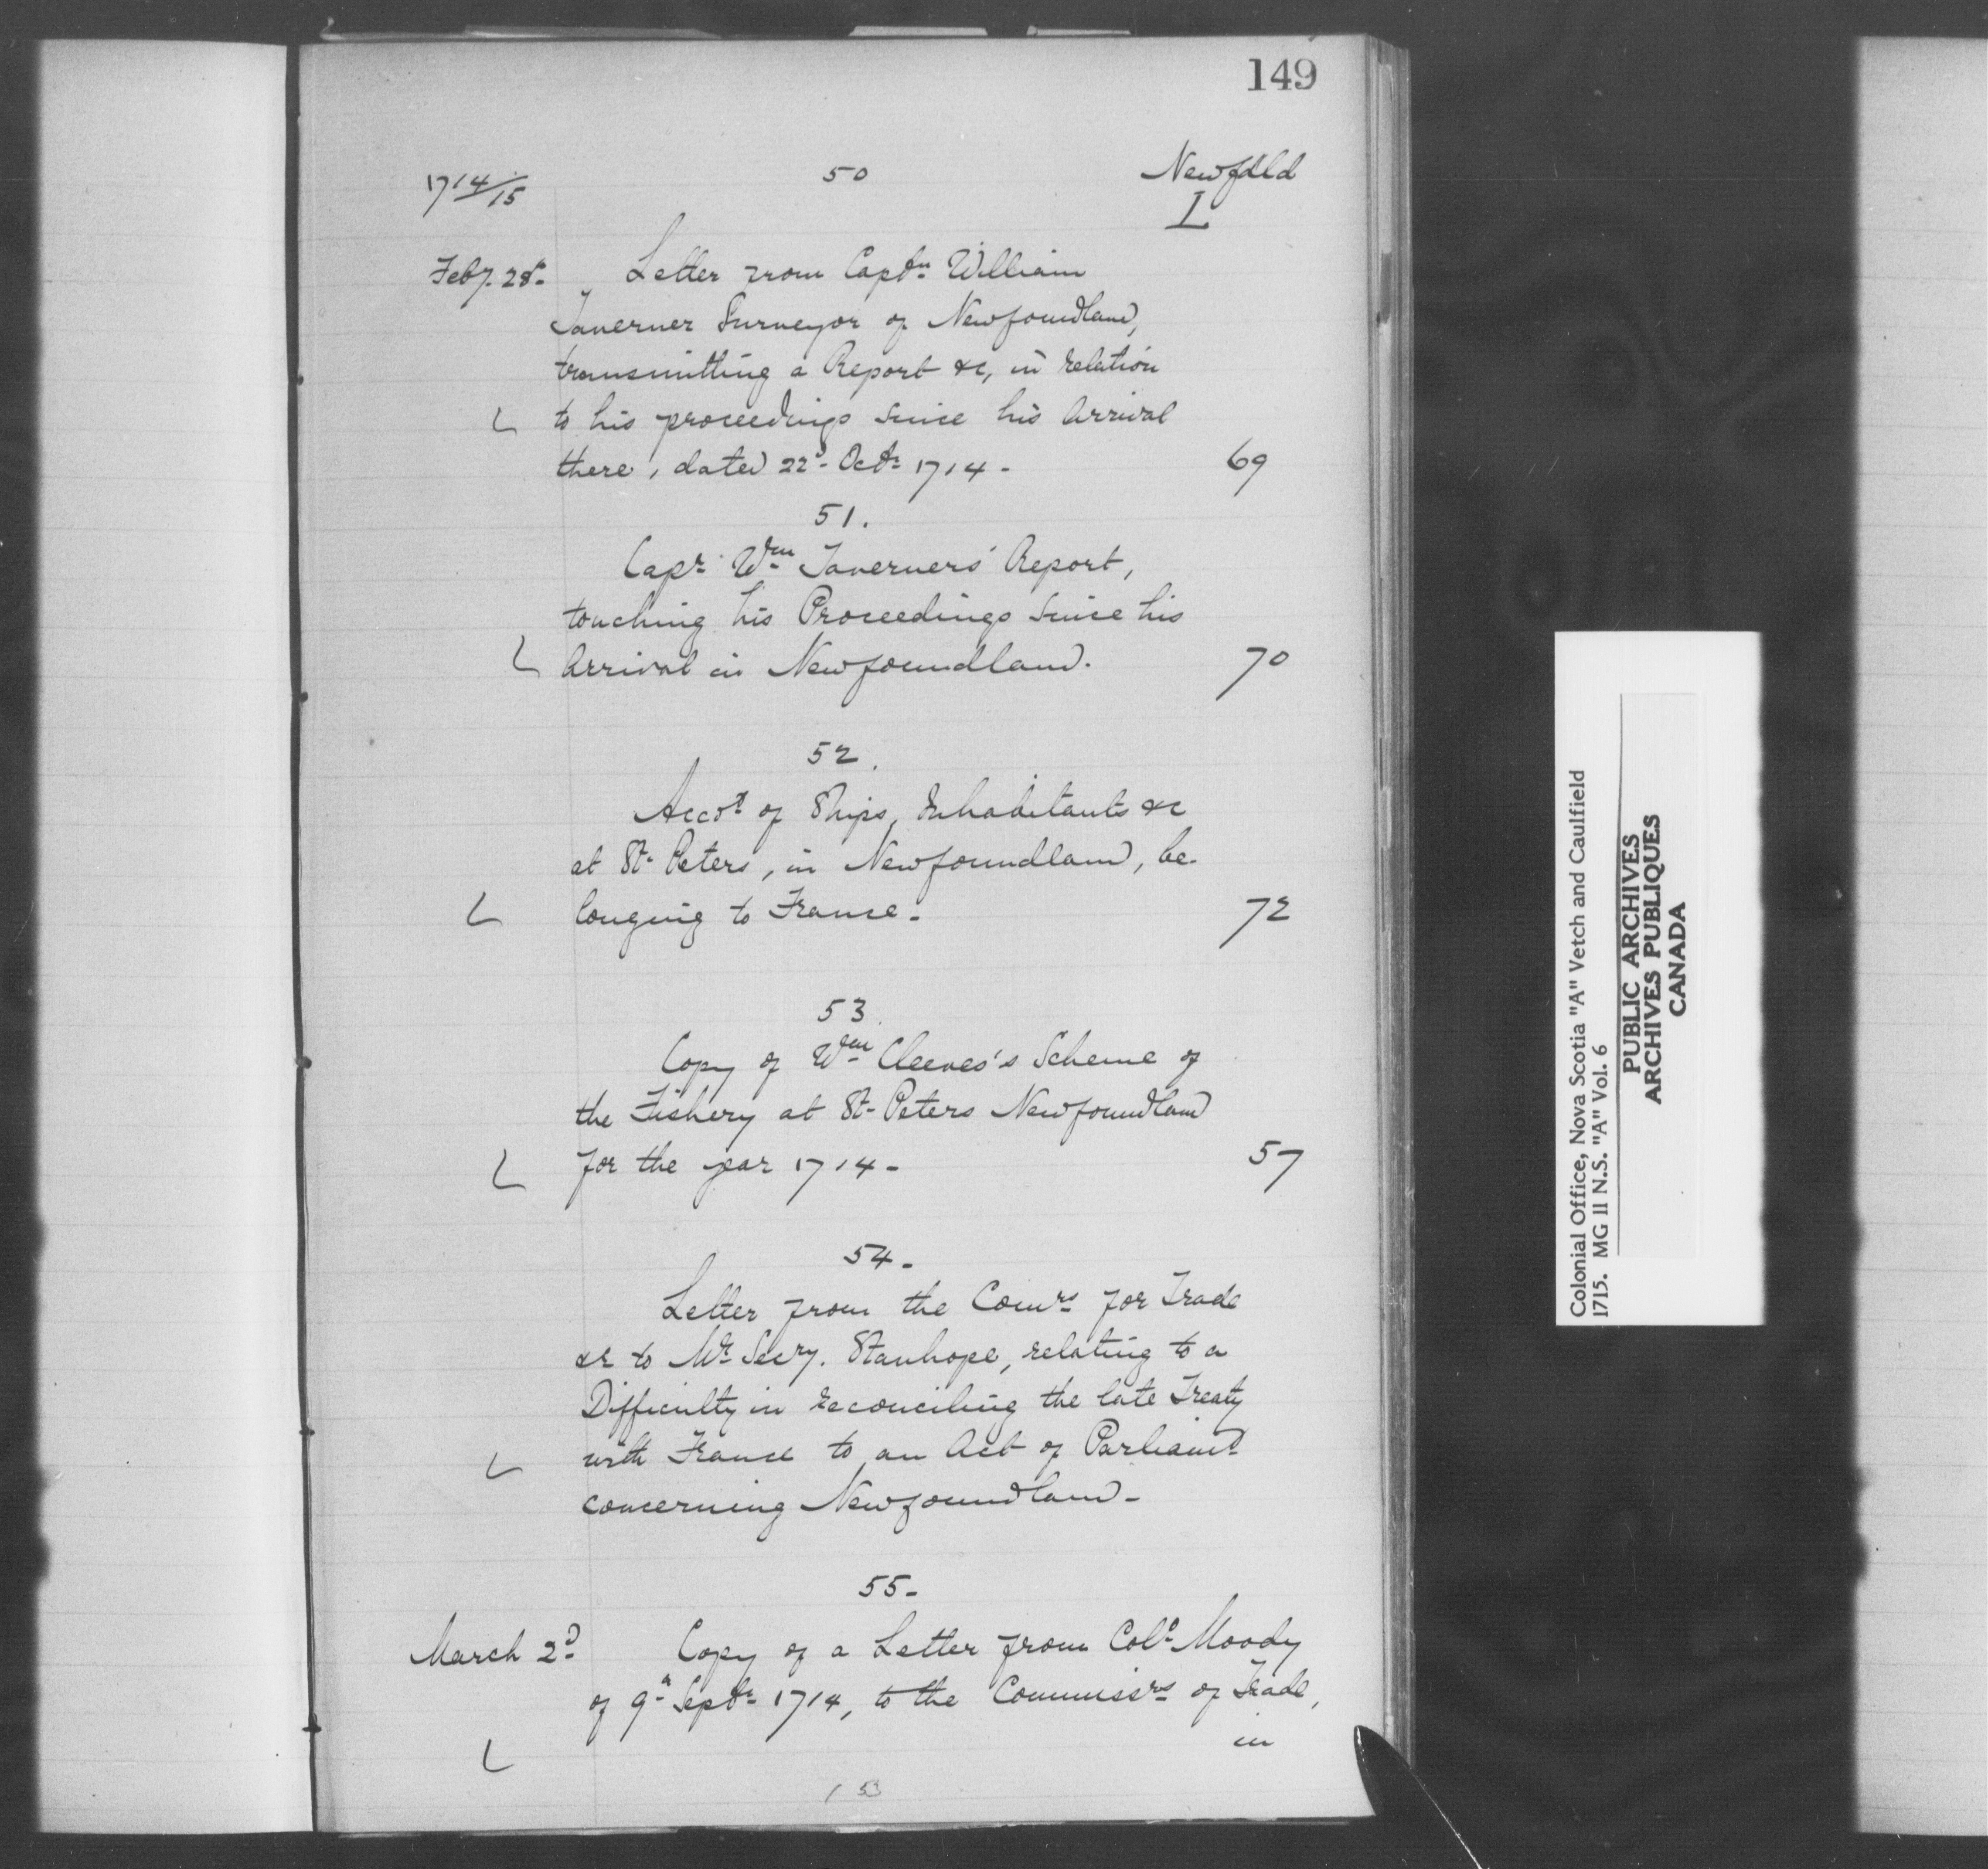 149
1714/15
50
Newfdld
L
Feby. 28th
Letter from Captn William
Taverner Surveyor of Newfoundland,
transmitting a Report &c, in relation
to his proceedings since his Arrival
there, dated 22d Octr 1714 -
69
51.
Capt Wm Taverners' Report,
touching his Proceedings since his
Arrival in Newfoundland.
70
52.
Acct of Ships, Inhabitants &c
at St. Peters, in Newfoundland, be-
longing to France.
72
53.
Copy of Wm Cleeves's Scheme of
the Fishery at St. Peters Newfoundland
for the year 1714 -
57
54 -
Letter from the Comrs for Trade
&c to Mr Secry. Stanhope, relating to a
Difficulty in reconciling the late Treaty
with France to an Act of Parliamt
concerning Newfoundland -
55 -
March 2d
Copy of a Letter from Colo Moody
of 9th Septr 1714, to the Commissrs of Trade,
in
153
Colonial Office, Nova Scotia "A" Vetch and Caulfield
1715. MG 11 N.S. "A" Vol. 6
PUBLIC ARCHIVES
ARCHIVES PUBLIQUES
CANADA